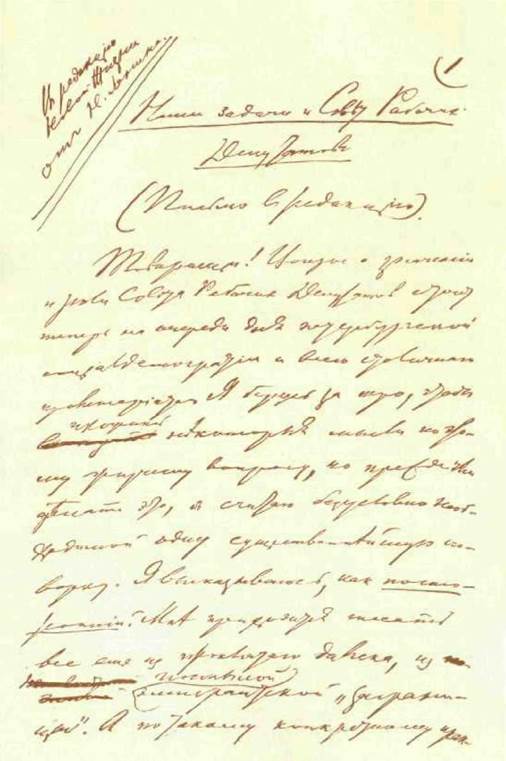 В редакцию
Новой Жизни
от Н. Ленина.
1
Наши задачи и Совет Рабочих
Депутатов
(Письмо в редакцию).
Товарищи! Вопрос о значении
и роли Совета Рабочих Депутатов стоит
теперь на очереди дня петербургской
социалдемократии и всего столичного
пролетариата. Я берусь за перо, чтобы
изложить
некоторые мысли по это-
му жгучему вопросу, но прежде чем
делать это, я считаю безусловно необ-
ходимой одну существеннейшую ого-
ворку. Я высказываюсь, как посто-
ронний. Мне приходится писать
все еще из проклятого далека, из
постылой
эмигрантской "заграни-
цы". А по такому конкретному прак-